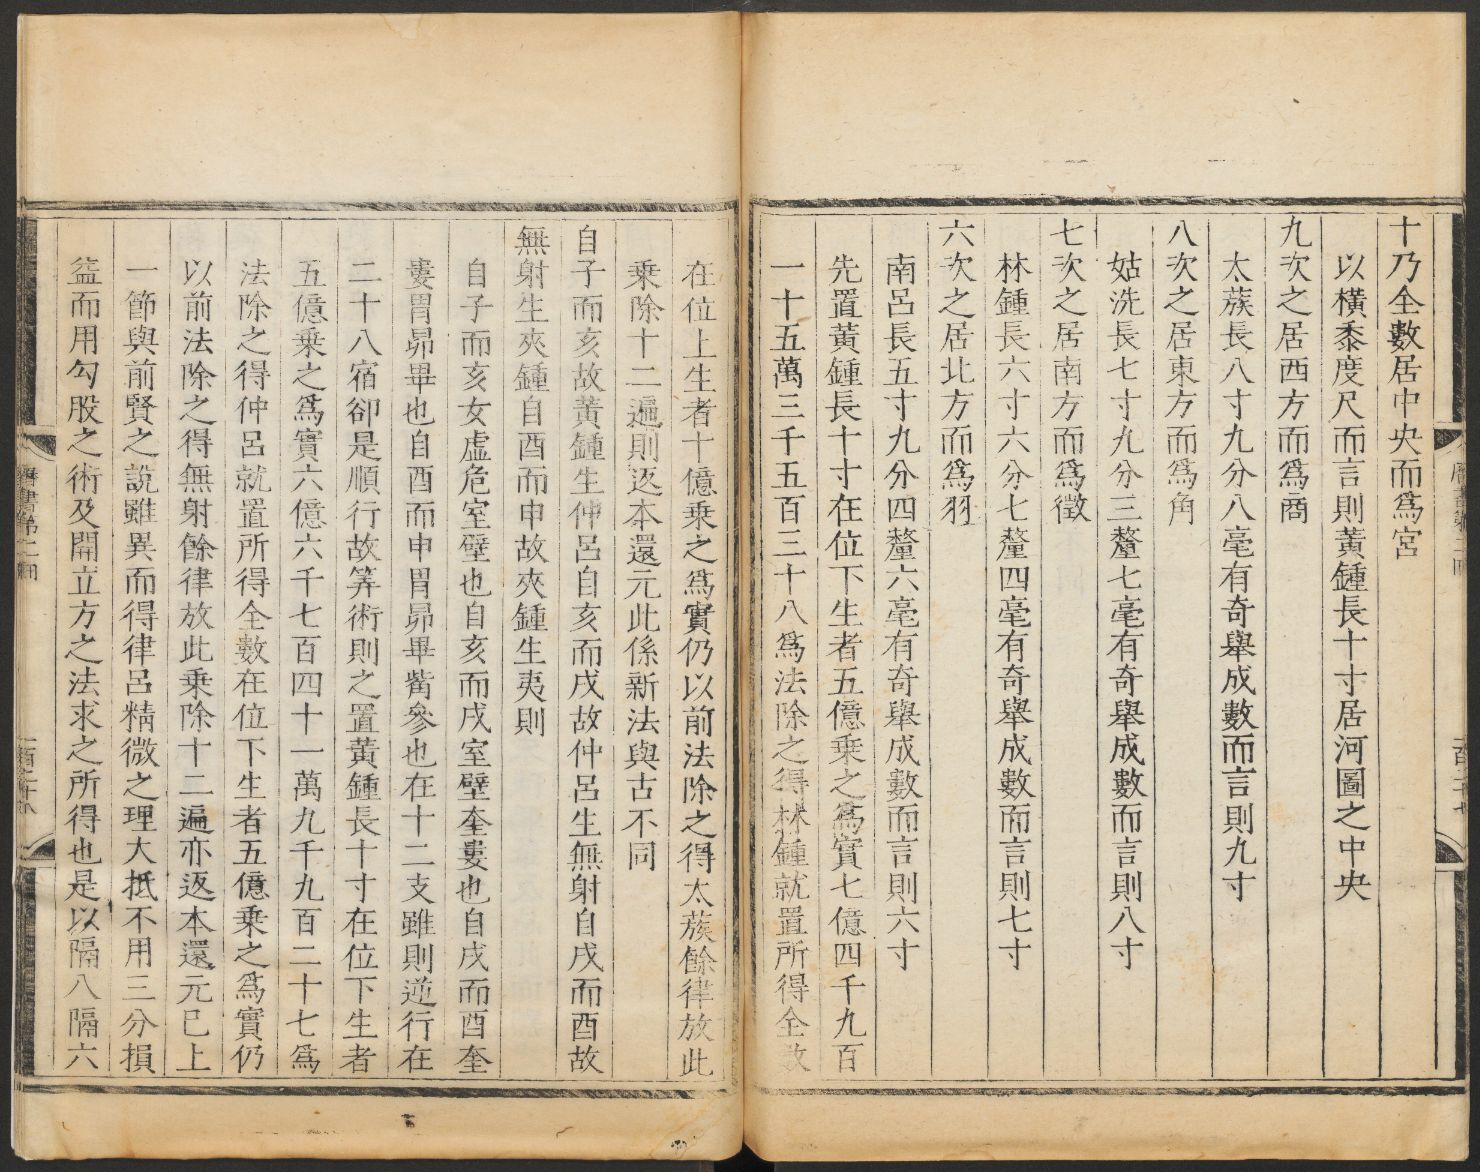 十乃全數居中央而爲宮
以橫黍度尺而言則黃鍾長十寸居河圖之中央
九次之居西方而爲商
太蔟長八寸九分八毫有奇舉成數而言則九寸
八次之居東方而爲角
姑洗長七寸九分三釐七毫有奇舉成數而言則八寸
七次之居南方而爲徵
林鍾長六寸六分七釐四毫有奇舉成數而言則七寸
六次之居北方而爲羽
南呂長五寸九分四釐六毫有奇舉成數而言則六寸
先置黃鍾長十寸在位下生者五億乘之爲實七億四千九百
一十五萬三千五百三十八爲法除之得林鍾就置所得全數
在位上生者十億乘之爲實仍以前法除之得太蔟餘律放此
乘除十二遍則返本還元此係新法與古不同
自子而亥故黃鍾生仲呂自亥而戌故仲呂生無射自戌而酉故
無射生夾鍾自酉而申故夾鍾生夷則
自子而亥女虛危室壁也自亥而戌室壁奎婁也自戌而酉奎
婁胃昴畢也自酉而申胃昴畢觜參也在十二支雖則逆行在
二十八宿卻是順行故筭術則之置黃鍾長十寸在位下生者
五億乘之爲實六億六千七百四十一萬九千九百二十七爲
法除之得仲呂就置所得全數在位下生者五億乘之爲實仍
以前法除之得無射餘律放此乘除十二遍亦返本還元已上
一節與前賢之說雖異而得律呂精微之理大抵不用三分損
益而用勾股之術及開立方之法求之所得也是以隔八隔六